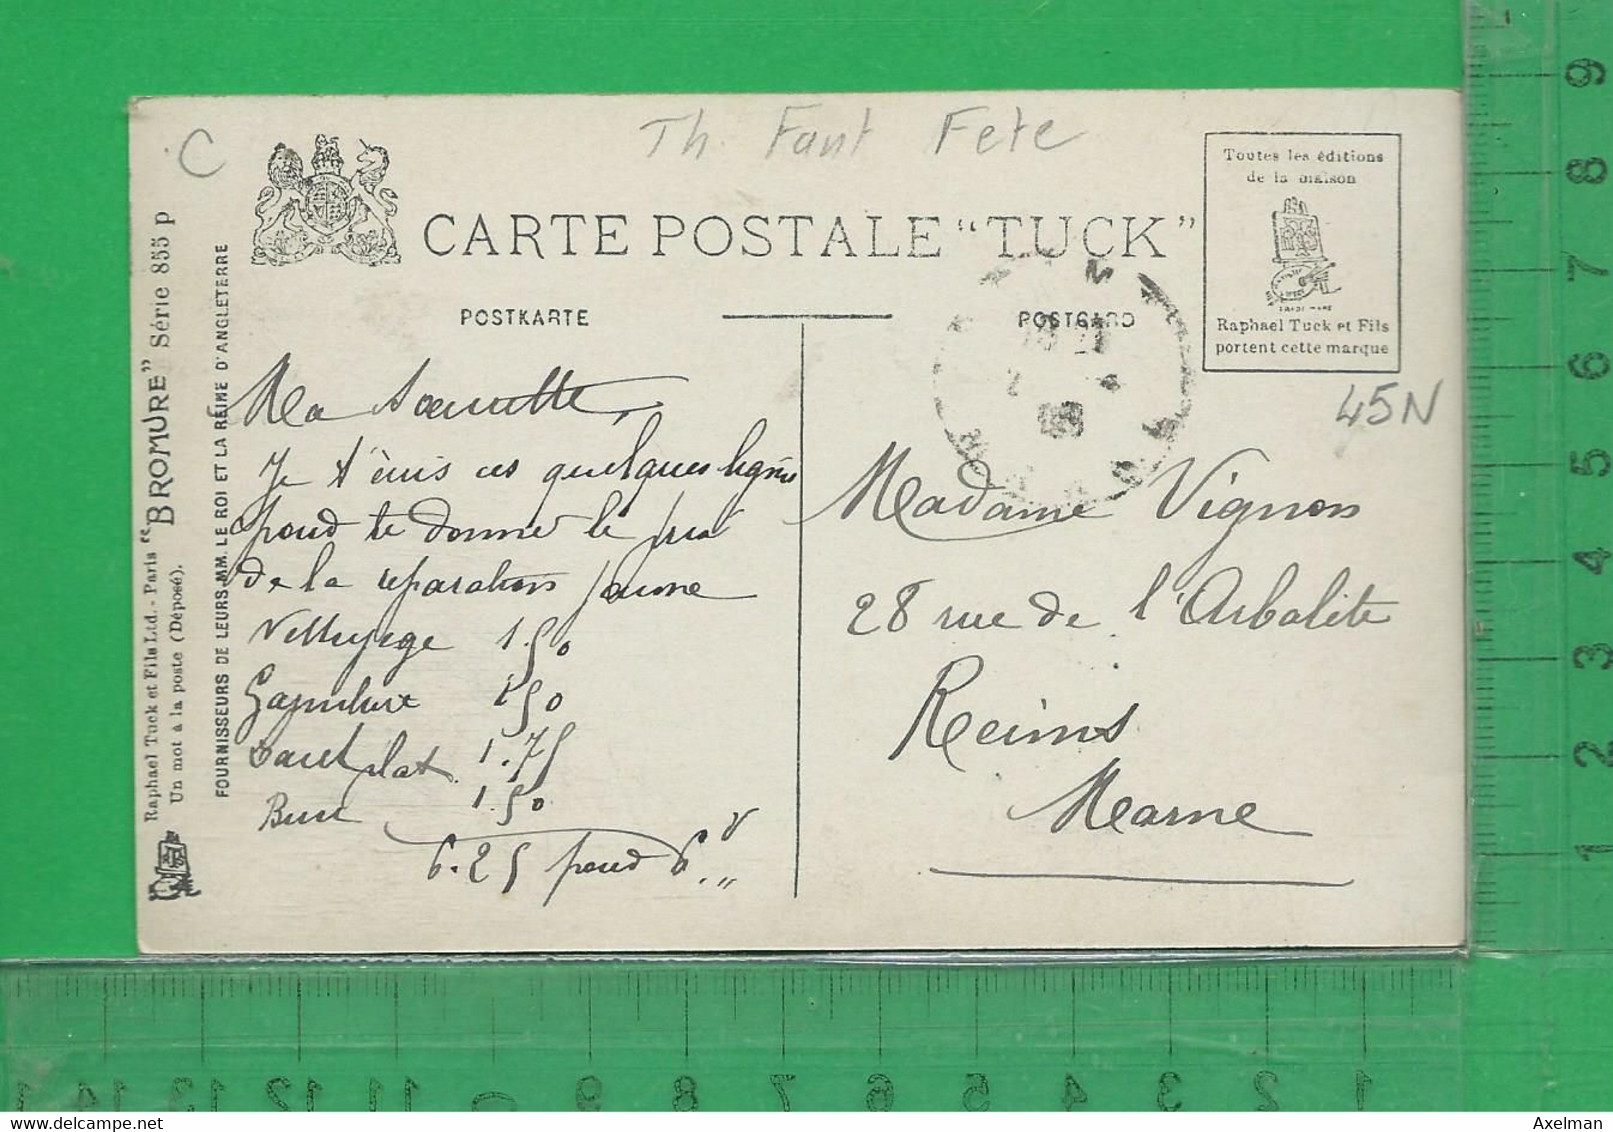 C
Th. Fant Fete
CARTE POSTALE "TUCK"
POSTKARTE
POSTCARD
Toutes les éditions
de la maison
Raphael Tuck et Fils
portent cette marque
45N
Raphael Tuck et Fils Ltd.- Paris "BROMURE" Série 855 P
Un mot à la poste (Déposé).
FOURNISSEURS DE LEURS MM. LE ROI ET LA REINE D'ANGLETERRE
Ma Soeurette,
Je t'écris ces quelques lignes
pour te donner le prix
de la réparation jaune
Nettoyage 1.50
1.50
plat 1.75
1.50
6.25 pour 6.,,
Madame Vignon
28 rue de l'Arbalète
Reims
Marne
9
8
7
6
5
4
3
2
1
14 13 12 11 9 8 7 6 5 4 3 2 1
delcampe.net
Axelman